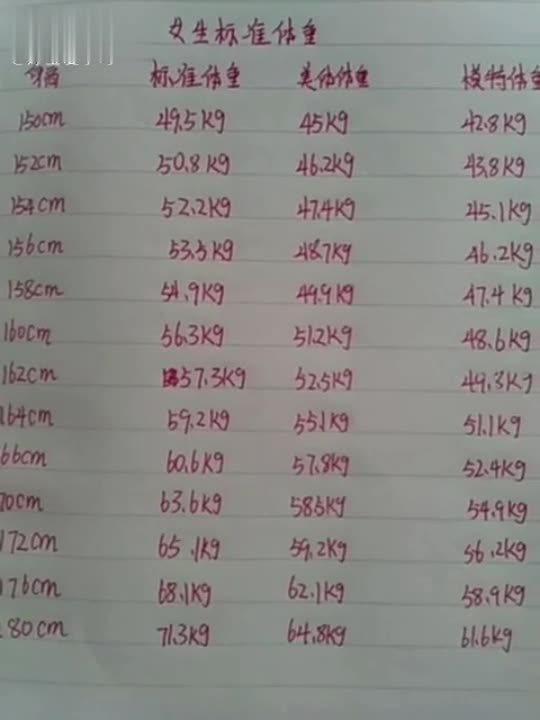 女生标准体重
身高 标准体重 美体体重 模特体重
150cm 49.5kg 45kg 42.8kg
152cm 50.8kg 46.2kg 43.8kg
154cm 52.2kg 47.4kg 45.1kg
156cm 53.5kg 48.7kg 46.2kg
158cm 54.9kg 49.9kg 47.4kg
160cm 56.3kg 51.2kg 48.6kg
162cm 57.3kg 52.5kg 49.3kg
164cm 59.2kg 55.1kg 51.1kg
66cm 60.6kg 57.8kg 52.4kg
70cm 63.6kg 58.5kg 54.9kg
172cm 65.1kg 59.2kg 56.2kg
176cm 68.1kg 62.1kg 58.9kg
80cm 71.3kg 64.8kg 61.6kg